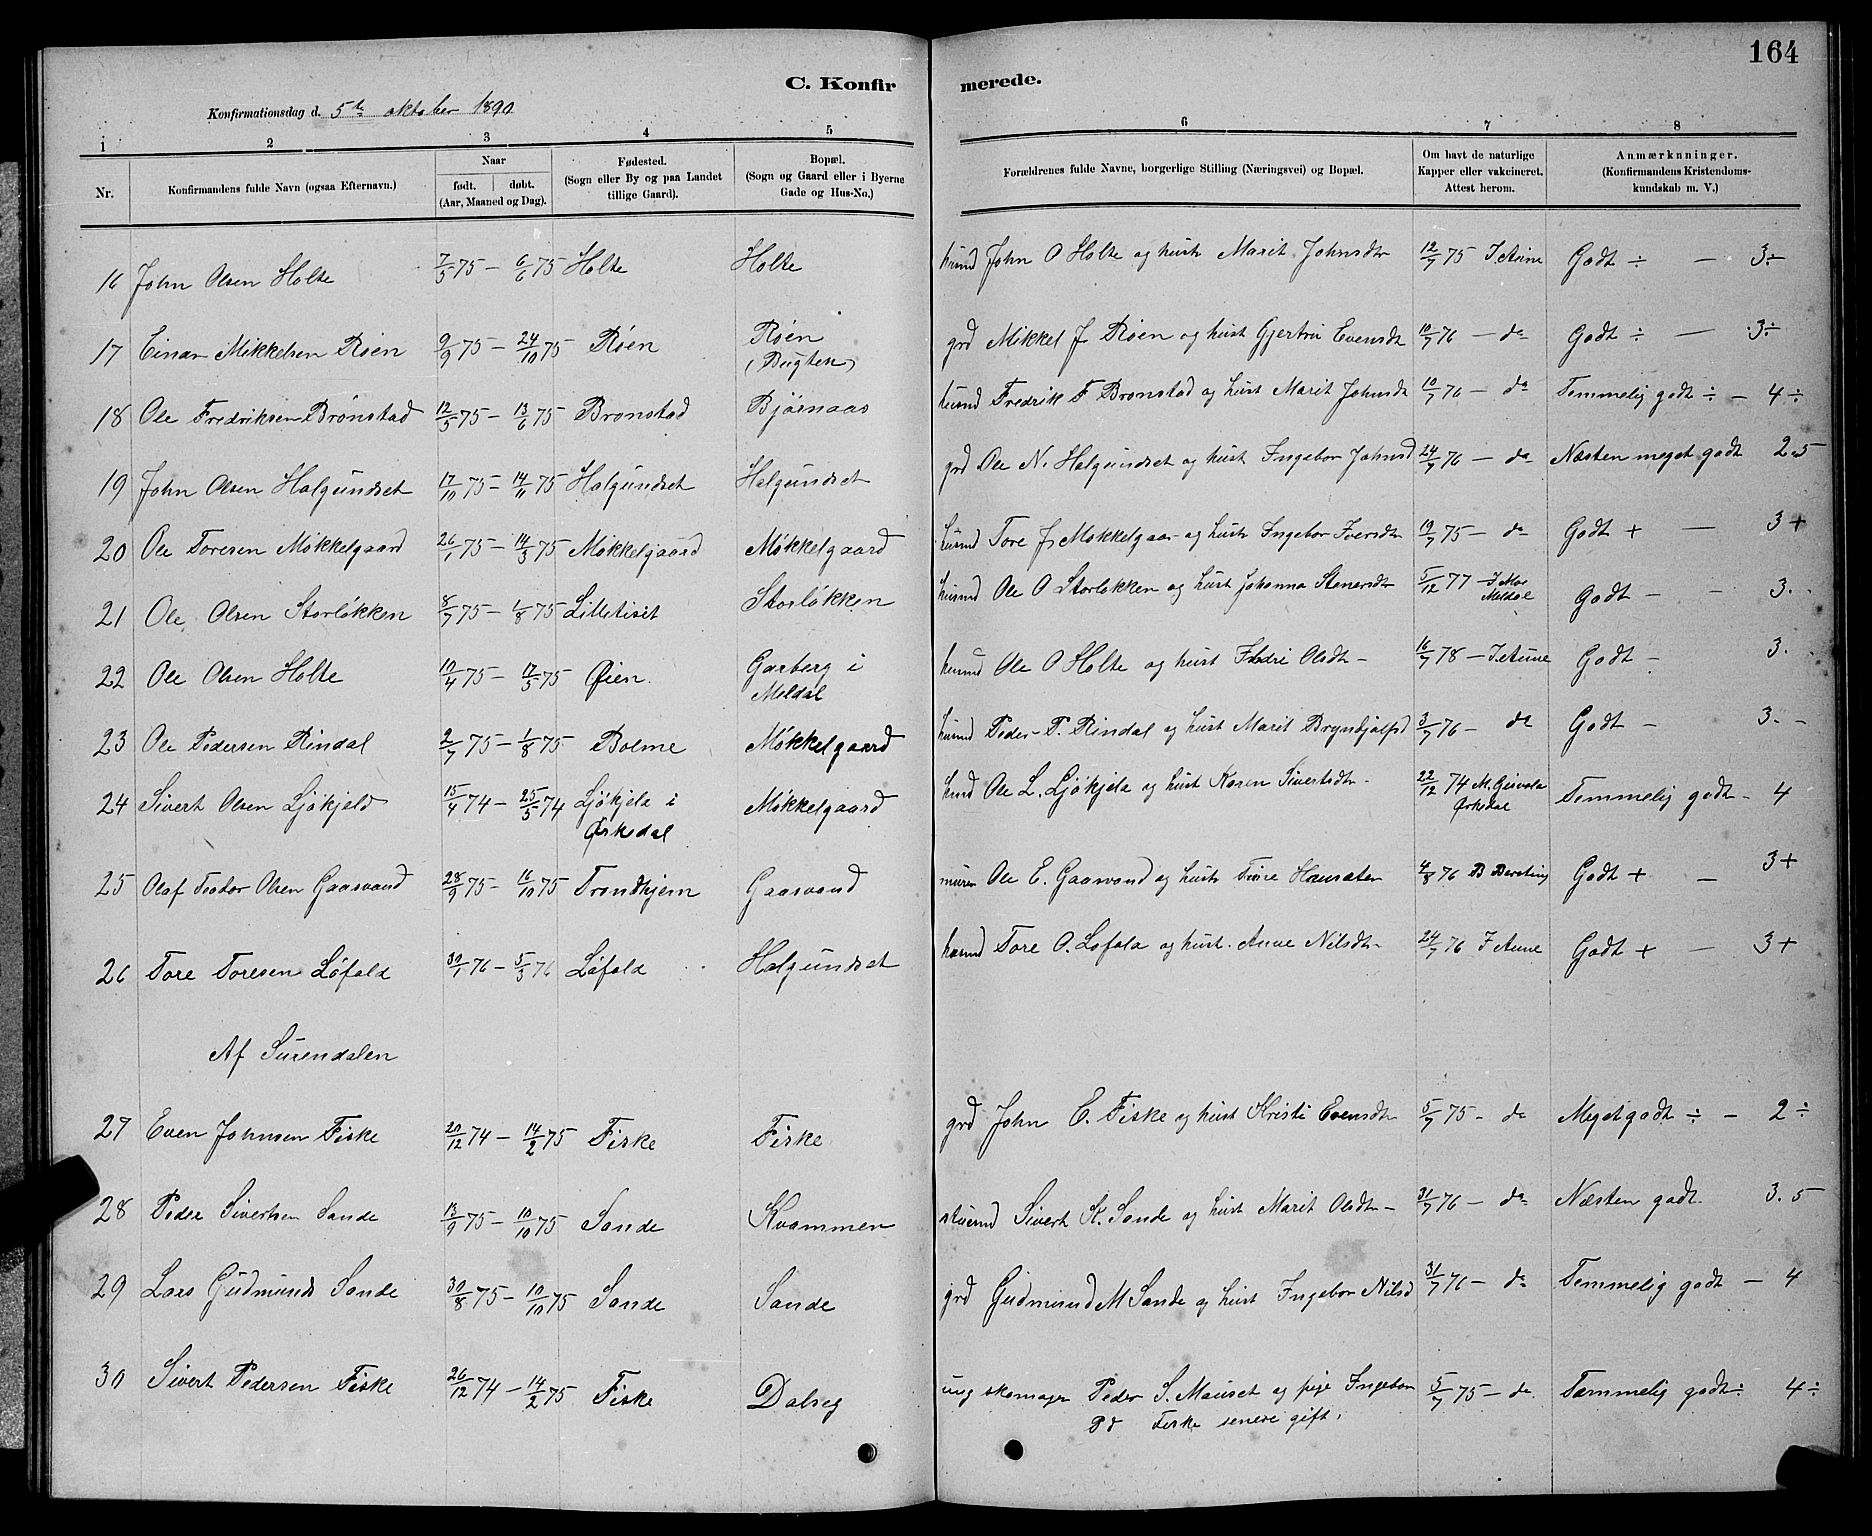 164
C. Konfirmerede.
Konfirmationsdag d. 5te oktober 1890
1 2 3 4 5 6 7 8
Nr. Konfirmandens fulde Navn (ogsaa Efternavn.) Naar født. døbt. (Aar, Maaned og Dag). Fødested. (Sogn eller By og paa Landet tillige Gaard). Bopæl. (Sogn og Gaard eller i Byerne Gade og Hus-No.) Forældrenes fulde Navne, borgerlige Stilling (Næringsvei) og Bopæl. Om havt de naturlige Kapper eller vakcineret. Attest herom. Anmærkninger. (Konfirmandens Kristendomskundskab m. V.)
16 John Olsen Holte 7/5 75 – 6/6 75 Holte Holte husmd John O Holte og hustr Marit Johnsdtr 12/7 75 J. Aune Godt ÷ — 3÷
17 Einar Mikkelsen Røen 9/9 75 – 24/10 75 Røen Røen (Bugten) grd Mikkel J Røen og hust Gjertru Evensdt 10/7 76 – do Godt ÷ — 3÷
18 Ole Fredriksen Brønstad 12/5 75 – 13/6 75 Brønstad Bjørnaas husmd Fredrik F Brønstad og hust Marit Johnsdt 10/7 76 – do Temmelig godt ÷ – 4÷
19 John Olsen Halgundset 17/10 75 – 14/11 75 Halgundset Halgundset grd Ole N. Halgundset og hust Ingebor Johnsd 24/7 76 – do Næsten meget godt 2.5
20 Ole Toresen Møkkelgaard 26/1 75 – 14/3 75 Møkkelgaard Møkkelgaard husmd Tore J Møkkelgaar og hustr Ingebor Iversdtr 19/7 75 – do Godt + — 3+
21 Ole Olsen Storløkken 8/7 75 – 1/8 75 Litletiset Storløkken husmd Ole O Storløkken og hust Johanna Stenersdtr 5/12 77 J. Moe Meldal Godt – – 3.
22 Ole Olsen Holte 10/4 75 – 17/5 75 Øien. Garberg i Meldal husmd Ole O Holte og hust Olsdt – 16/7 78 – J. Aune Godt – 3.
23 Ole Pedersen Rindal 2/7 75 – 1/8 75 Bolme Møkkelgaard husmd Peder P. Rindal og hust Marit Brynhjulfsd 3/7 76 – do Godt – 3. –
24 Sivert Olsen Ljøkjeld 15/4 74 – 25/5 74 Ljøkjela i Ørkedal Møkkelgaard husmd Ole L. Ljøkjela og hust Karen Sivertsdtr – 22/12 74 M. Gisvola Ørkedal Temmelig godt – 4
25 Olaf Teodor Olsen Gaasvand 28/9 75 – 16/10 75 Trondhjem Gaasvand murer Ole E. Gaasvand og hustr 4/8 76 Godt + — 3+
26 Tore Toresen Løfald 30/1 76 – 5/3 76 Løfald Halgundset husmd Tore O. Løfald og hust. Anne Nilsdt – 24/7 76 J Aune Godt + — 3+
Af Surendalen
27 Even Johnsen Fiske 20/12 74 – 14/2 75 Fiske Fiske grd John E. Fiske og hust Kristi Evensdt – 5/7 75 – do Meget godt ÷ – 2÷
28 Peder Sivertsen Sande 13/9 75 – 10/10 75 Sande Kvammen Sivert K. Sande og hust Marit Olsdt – 31/7 76 – do Næsten godt. 3.5
29 Lars Gudmunds Sande 30/8 75 – 10/10 75 Sande Sande grd Gudmund M Sande og hust Ingebor Nilsd 31/7 76 – do Temmelig godt — 4
30 Sivert Pedersen Fiske 26/12 74 – 14/2 75 Fiske Dalseg ung skomager Peder S. Mauset og pige Ingebor Pd Fiske senere gift. 5/7 75 – do Temmelig godt ÷ 4÷